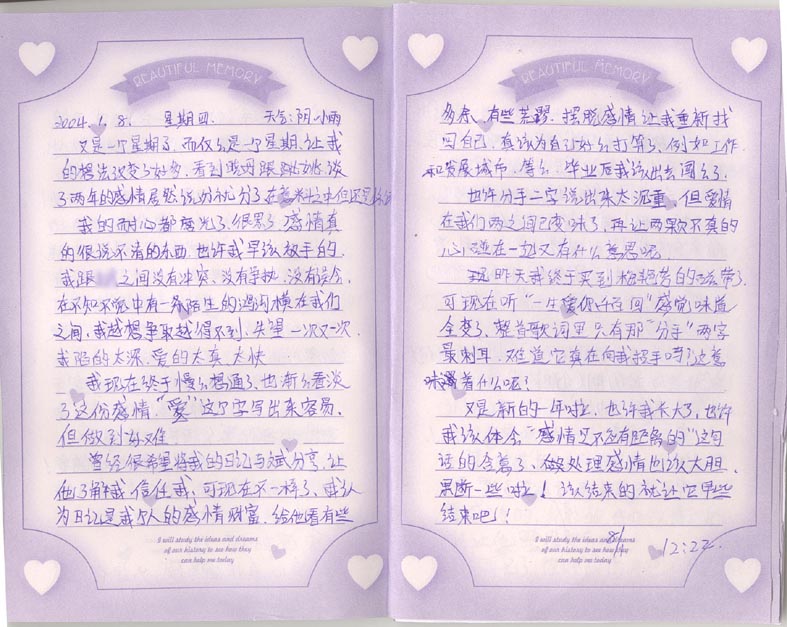 BEAUTIFUL MEMORY
2004. 1. 8. 星期四. 天气:阴.小雨
又是一个星期了,而仅仅是一个星期,让我
的想法改变了好多,看到 跟 谈
了两年的感情居然说分就分了在
我的耐心都磨光了,很累了,感情真
的很说不清的东西,也许我早该放手的.
我跟 之间没有冲突、没有争执、没有误会,
在不知不觉中有一条陌生的鸿沟横在我们
之间,我越想争取越得不到,失望一次又一次.
我陷的太深,爱的太真、太快
我现在终于慢慢想通了,也渐渐看淡
了这份感情,“爱”这个字写出来容易,
但做到好难
曾经很希望将我的日记与 分享,让
他了解我、信任我,可现在不一样了,我认
为日记是我个人的感情财富,给他看有些
I will study the ideas and dreams
of our history to see how they
can help me today
BEAUTIFUL MEMORY
多余、有些荒谬. 摆脱感情让我重新找
回自己,真该为自己好好打算了,例如工作
和发展城市、等等,毕业后我该出去闯闯了.
也许分手二字说出来太沉重,但爱情
在我们两之间已变味了,再让两颗不真的
心,碰在一起又有什么意思呢.
昨天我终于买到梅艳芳的磁带了
可现在听“一生爱你千百回”感觉味道
全变了,整首歌词里只有那“分手”两字
最刺耳,难道它真在向我招手吗?这意
味着什么呢?
又是新的一年啦,也许我长大了,也许
我该体会“感情是不能有距离的”这句
话的含意了,做处理感情也该大胆,
果断一些啦!该结束的就让它早些
结束吧!
I will study the ideas and dreams
of our history to see how they
can help me today
8/1 12:22.